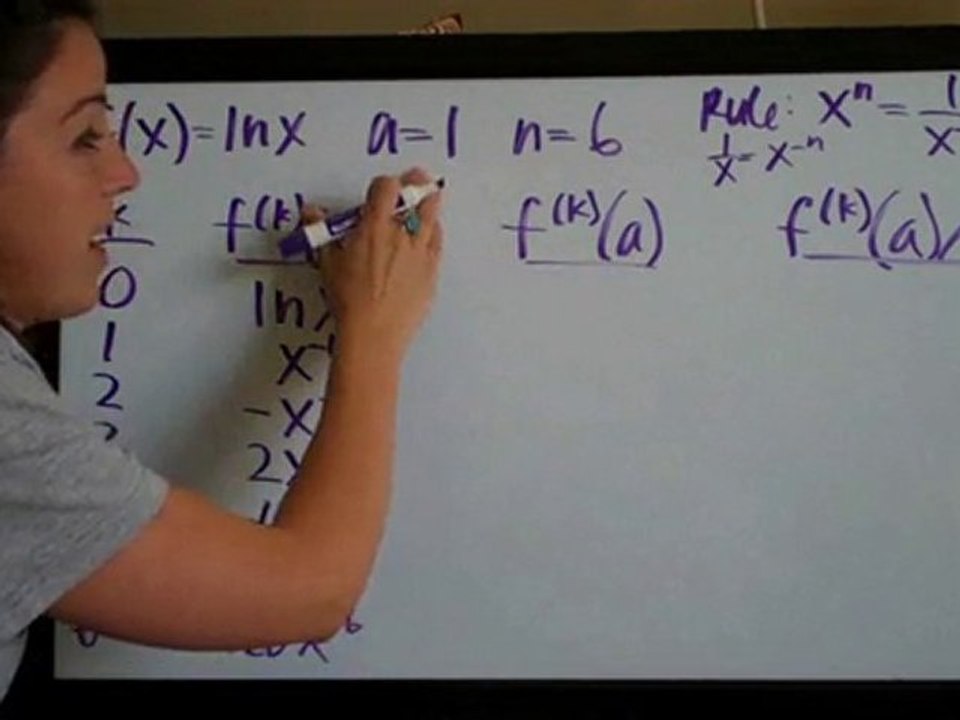 (x)=lnx a=1 n=6 Rule: xⁿ= 1
1/x=x⁻ⁿ
k f^(k) f^(k)(a) f^(k)(a)/
0 ln
1 x⁻
2 -x
2x